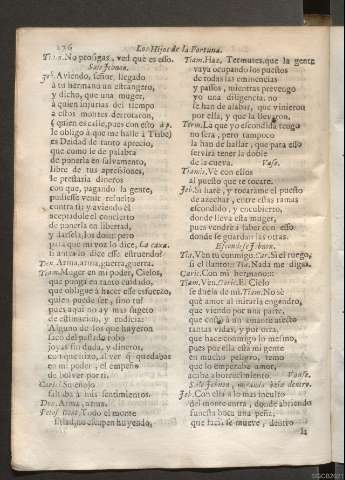 Los Hijos de la Fortuna.
No prosigas, ved què es esso.
Sale Jebnon.
Jeb. Aviendo, señor, llegado
à tu hermano un estrangero,
y dicho, que una muger,
à quien injurias del tiempo
à estos montes derrotaron,
(quien es calle, pues con esto
le obligò à que me halle à Tisbe)
es Deidad de tanto aprecio,
que como le dè palabra
de ponerla en salvamento,
libre de tus aprisiones,
le prestaria dineros
con que, pagando la gente,
pudiesse venir resuelto
contra ti: y aviendo èl
aceptadole el concierto
de ponerla en libertad,
y darsela, los dineros
para que mi voz lo dice, La caxa.
si antes lo dice esse estruendo?
Den. Arma, arma, guerra, guerra.
Tiam. Muger en mi poder, Cielos,
que ponga en tanto cuidado,
que obligue à hacer esse esfuerzo,
quien puede ser, sino fue
pues aqui no ay mas sugeto
de estimacion, y codicia?
Alguno de los que huyeron
sacò del passado robo
joyas sin duda, y dineros,
con que hizo, al ver quedabos
en mi poder, el empeño
de bolver por ti.
Caric. Su enojo
faltaba à mis sentimientos.
Den. Arma, arma.
Todo el monte
sitiad, no escapen huyendo,
Tiam. Haz, Termutes, que la gente
vaya ocupando los puestos
de todas las eminencias
y passos, mientras prevengo
yo una diligencia: no
se han de alabar, que vinieron
por ella, y que la llevaron.
Term. La que yo escondida tengo
no serà, pero tampoco
la han de hallar, que para esso
servirà tener la doble
de la cueva. Vase.
Tiamis. Vè con essos
al puesto que te tocare.
Jeb. Si harè, y tocarame el puesto
de azechar, entre estas ramas
escondido, y encubierto,
donde lleva esta muger,
pues vendrè à saber con esso
donde se guardan las otras.
Escondese Jebnon.
Tia. Ven tu conmigo. Car. Si el ruego,
si el llanto: Tia. Nada me digas.
Caric. Con mi hermano:::
Tiam. Ven. Caric. El Cielo
se duela de mi. Tiam. No sè
què amor al mirarla engendro,
que viendo por una parte,
que cuesta un amante afecto
tantas vidas, y por otra,
que hace conmigo lo mesmo,
pues por ella està mi gente
en mucho peligro, temo
que lo empezaba amor,
acaba aborrecimiento. Vanse.
Sale Jebnon, mirando házia dentro.
Jeb. Con ella à lo mas inculto
del monte entra, donde abriendo
funesta boca una peña,
que facil se mueve, dentro